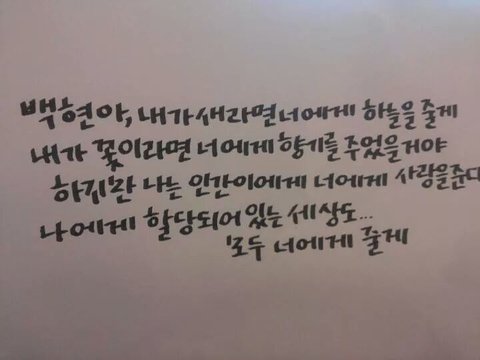 백현아, 내가 새라면 너에게 하늘을 줄게
내가 꽃이라면 너에게 향기를 주었을거야
하지만 나는 인간이에게 너에게 사랑을준다
나에게 할당되어 있는 세상도...
모두 너에게 줄게